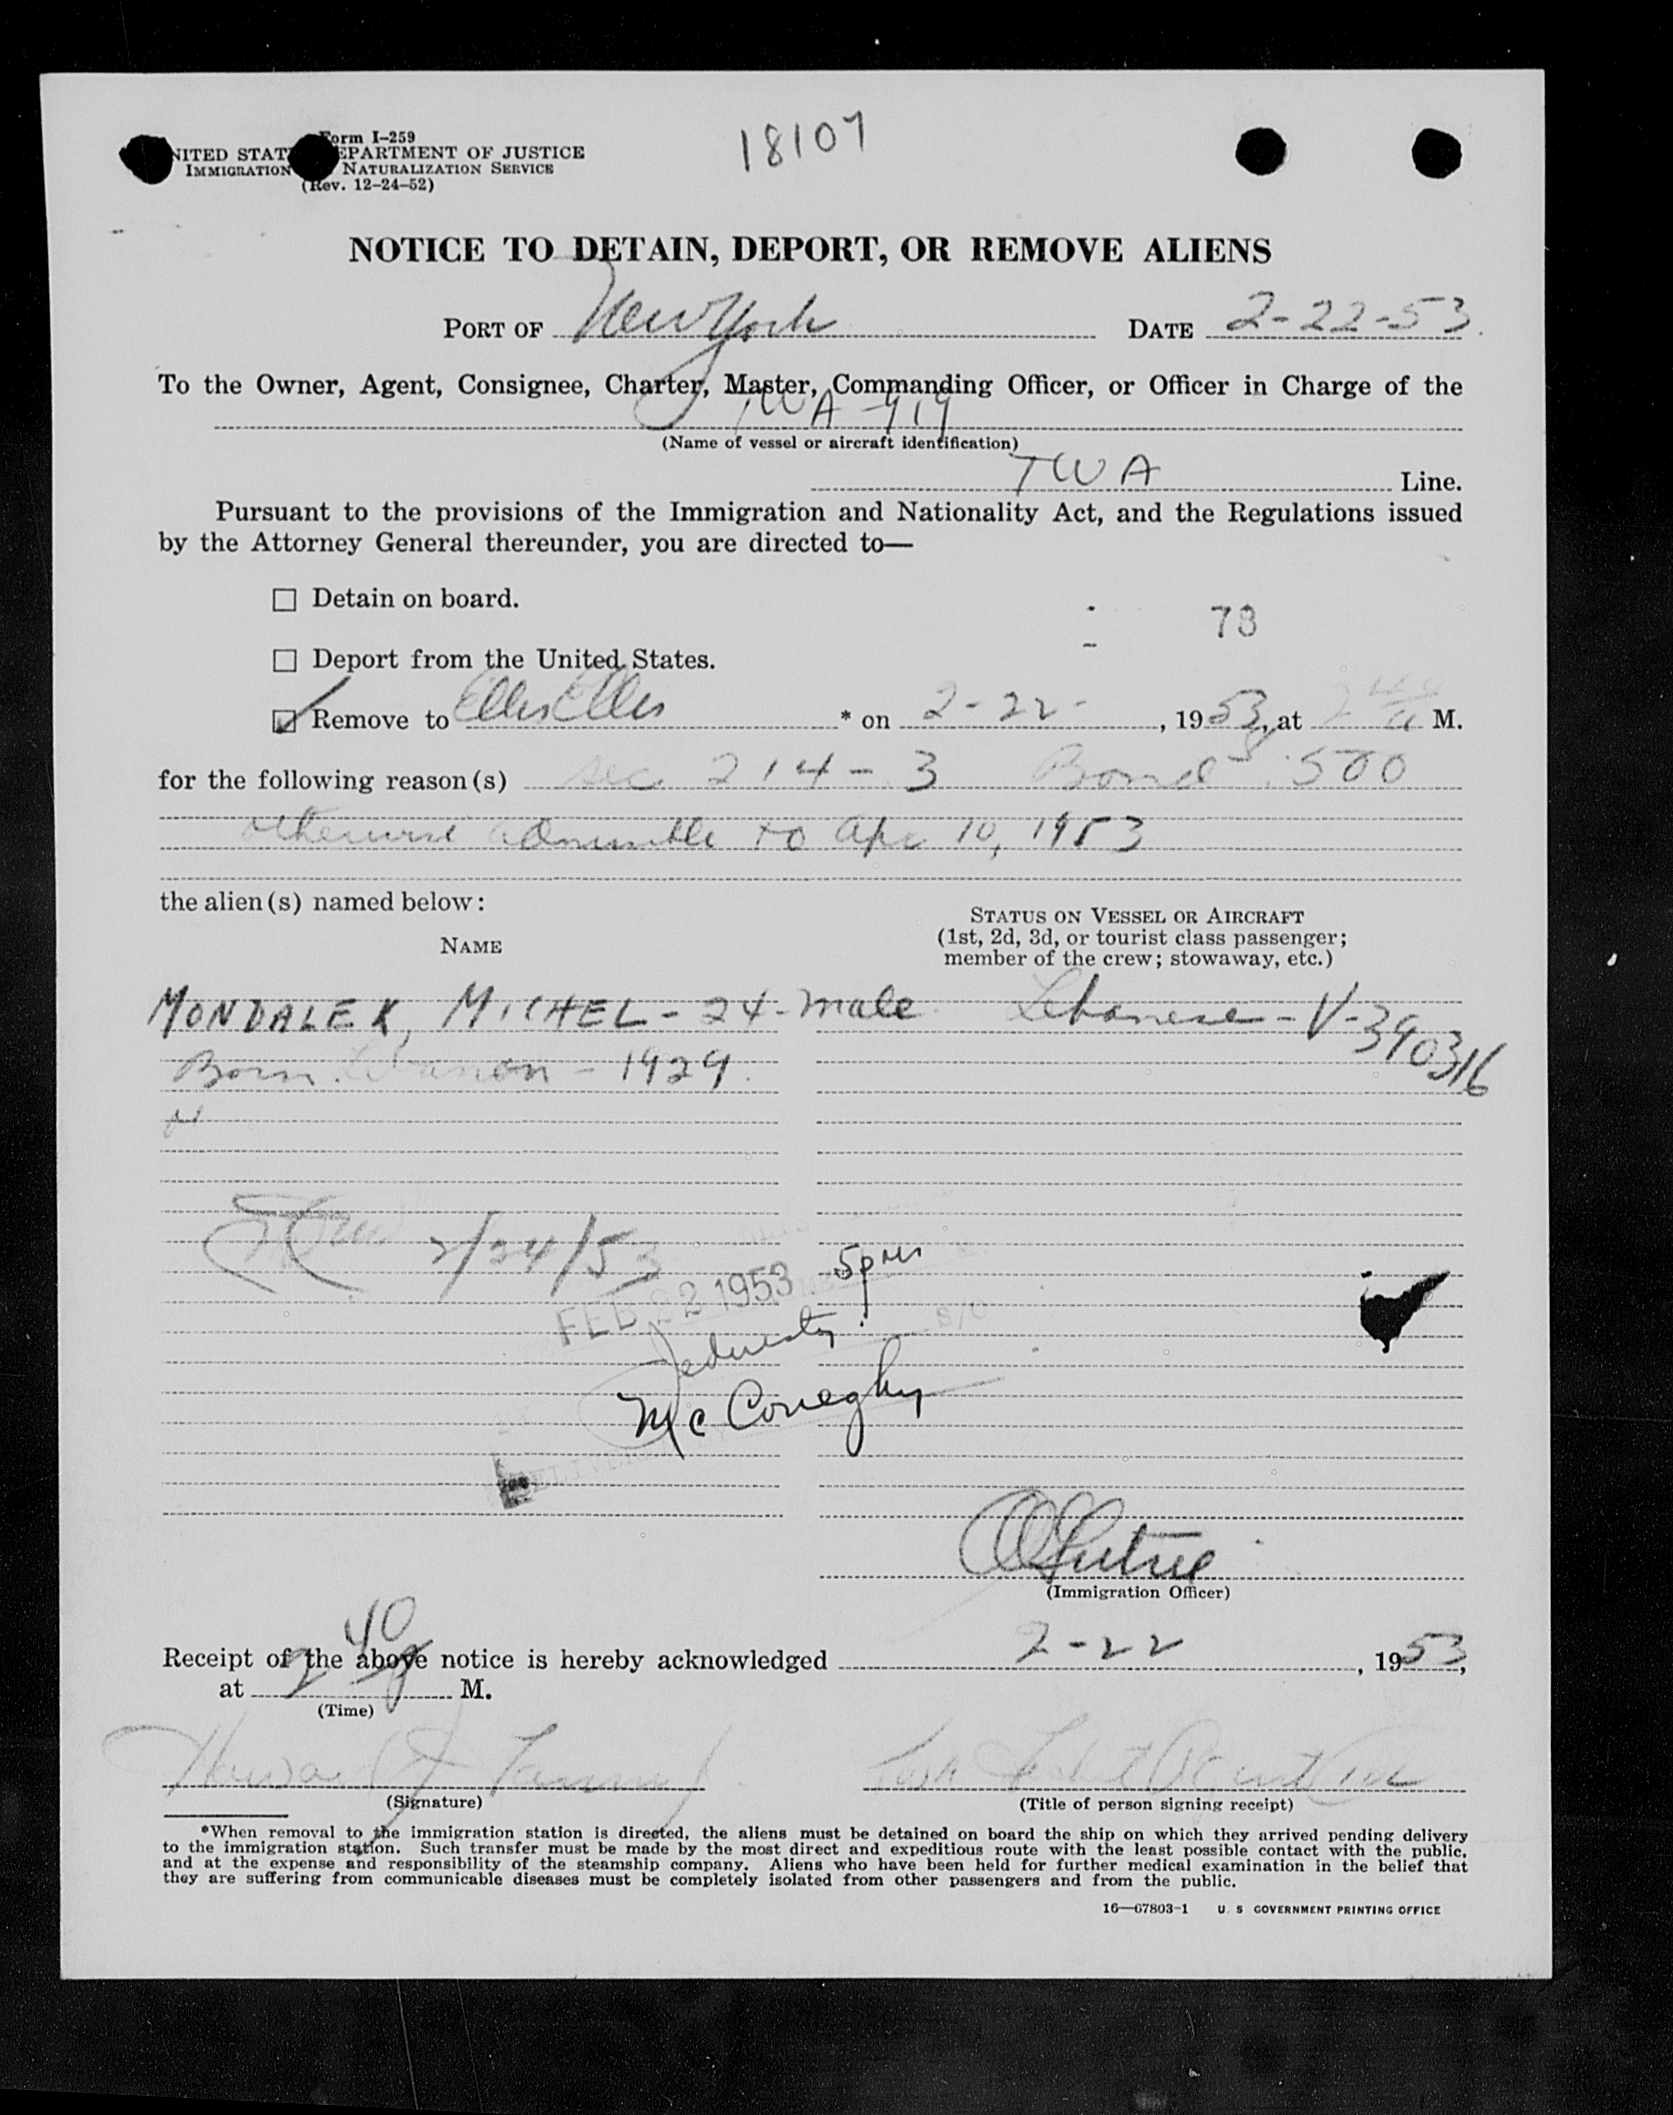 18107
Form I-259
UNITED STATES DEPARTMENT OF JUSTICE
IMMIGRATION NATURALIZATION SERVICE
(Rev. 12-24-52)
NOTICE TO DETAIN, DEPORT, OR REMOVE ALIENS
PORT OF New York DATE 2-22-53
To the Owner, Agent, Consignee, Charter, Master, Commanding Officer, or Officer in Charge of the
TWA -919
(Name of vessel or aircraft identification)
TWA Line.
Pursuant to the provisions of the Immigration and Nationality Act, and the Regulations issued
by the Attorney General thereunder, you are directed to—
☐ Detain on board.
78
☐ Deport from the United States.
☑ Remove to Ellis * on 2-22-, 1953, at 2 40 a M.
for the following reason(s) sec 214-3 Bond $ 500
otherwise admissible to Apr 10, 1953
the alien(s) named below:
NAME
STATUS ON VESSEL OR AIRCRAFT
(1st, 2d, 3d, or tourist class passenger;
member of the crew; stowaway, etc.)
MONDALEK, MICHEL - 24 - male Lebanese - V-390316
Born Lebanon - 1929
2/24/53
FEB 22 1953 5pm
McConeghy
(Immigration Officer)
Receipt of the above notice is hereby acknowledged 2-22, 1953,
at 2 40 a M.
(Time)
(Signature)
(Title of person signing receipt)
*When removal to the immigration station is directed, the aliens must be detained on board the ship on which they arrived pending delivery
to the immigration station. Such transfer must be made by the most direct and expeditious route with the least possible contact with the public,
and at the expense and responsibility of the steamship company. Aliens who have been held for further medical examination in the belief that
they are suffering from communicable diseases must be completely isolated from other passengers and from the public.
16—67803-1 U. S GOVERNMENT PRINTING OFFICE